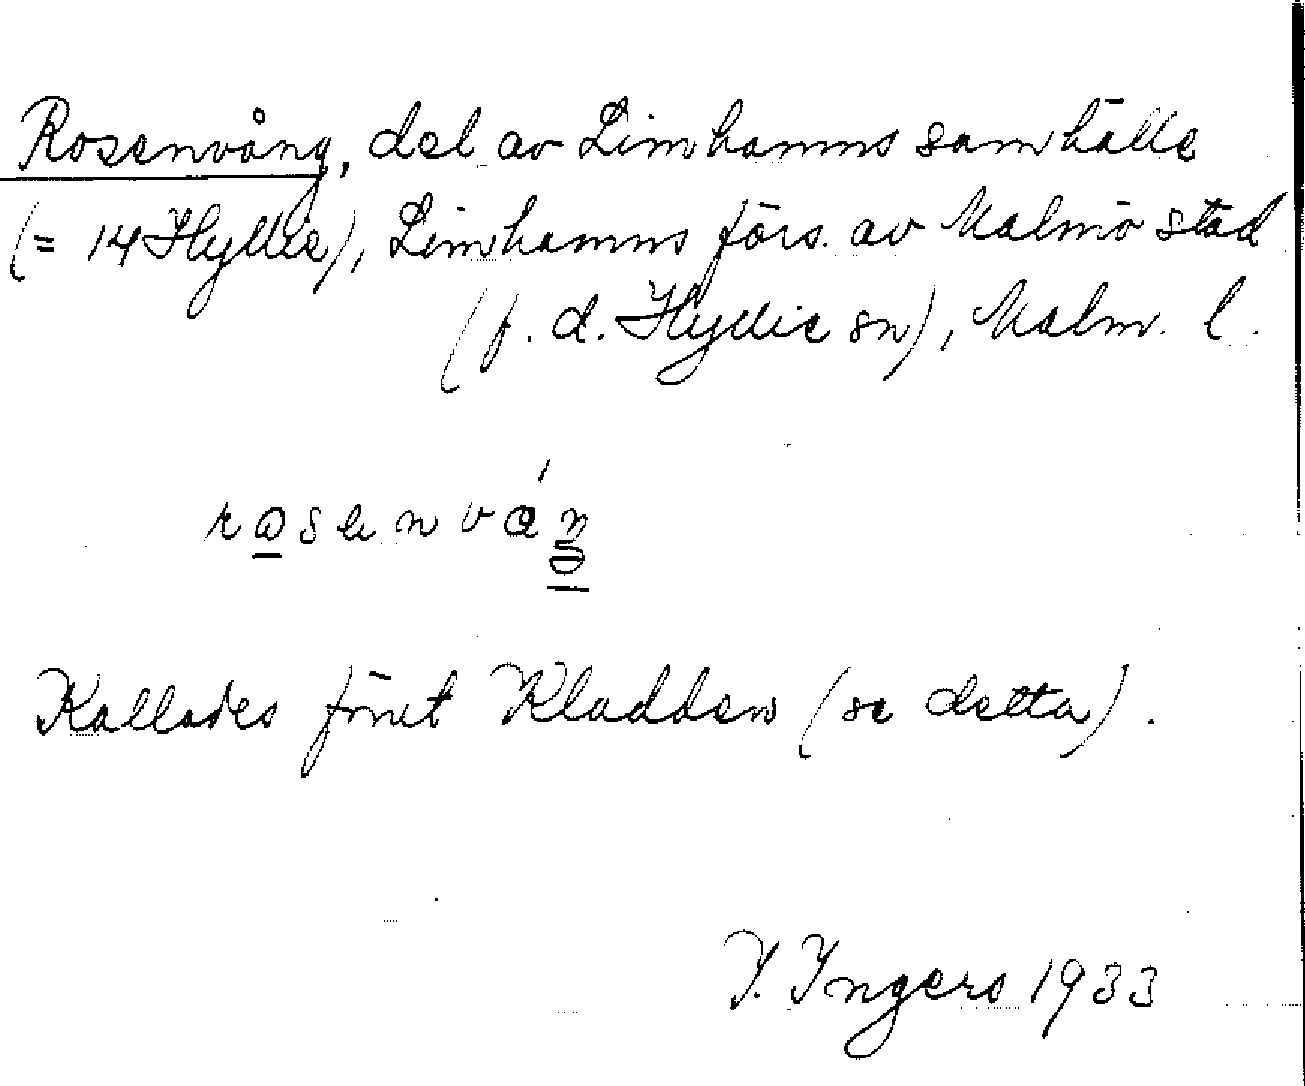 Rosenvång, del av Limhamns samhälle
(= 14 Hyllie), Limhamns förs. av Malmö stad
(f. d. Hyllie sn), Malm. l.
Kallades förut Kladden (se detta).
I. Ingers 1933